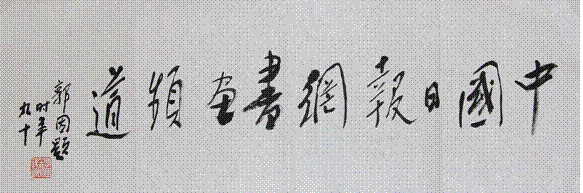 中國日報網書画頻道
郭因題
时年
九十